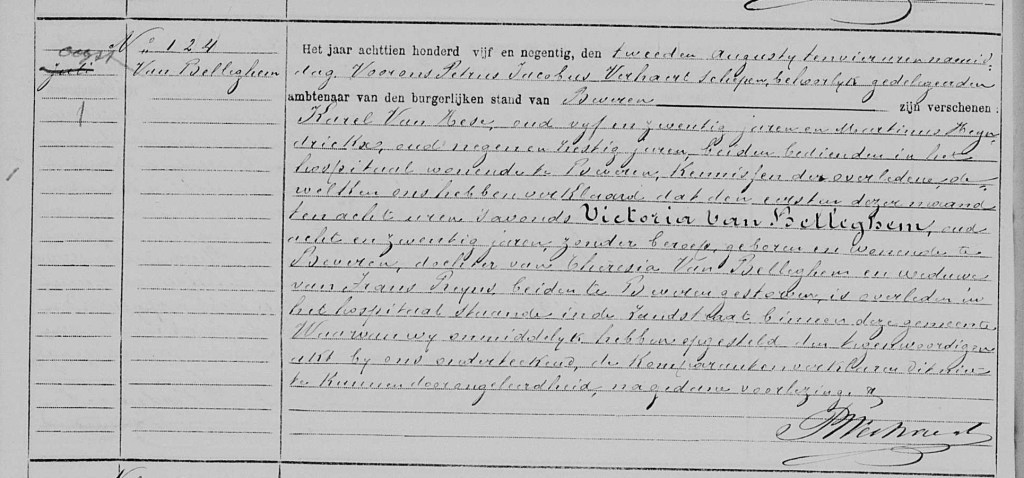 oogst
juli
1
No 124
Van Belleghem
Het jaar achttien honderd vijf en negentig, den tweeden augusty ten vier uren namid:
dag Voor ons Petrus Jacobus Verhaert schepen, behoorlyk gedelegeerden
ambtenaar van den burgerlijken stand van Beveren zijn verschenen:
Karel Van Hese, oud vyf en zwentig jaren en Martinus Heyn
drickx, oud negen en zestig jaren, beiden bedienden in het
hospitaal wonende te Beveren, Kennissen der overledene, de
welken ons hebben verklaard dat den eersten dezer maand
ten acht uren s'avonds Victoria Van Belleghem, oud
acht en zwentig jaren, zonder beroep, geboren en wonende te
Beveren, dochter van Theresia Van Belleghem en weduwe
van Frans Pryus, beiden te Beveren gestorven, is overleden in
het hospitaal staande in de zandstraat binnen deze gemeente
Waarvan wy onmiddelyk hebben opgesteld den tegenwoordigen
akt by ons onderteekend, de komparanten verklaren dit niet
te kunnen door ongeleerdheid, na gedane voorlezing.
PVerhaert